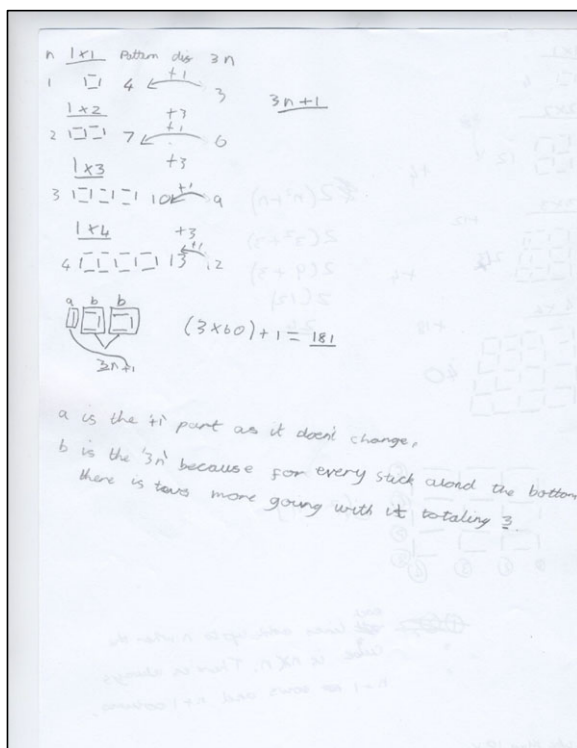 n 1x1 Pattern dis 3n
1 4 +1 3 3n+1
1x2 +3
2 7 +1 6
1x3 +3
3 10 +1 9
1x4 +3
4 13 +1 12
a b b
(3x60)+1= 181
3n+1
a is the '+1' part as it doesn't change,
b is the '3n' because for every stick alond the bottom
there is tows more goung with it totaling 3